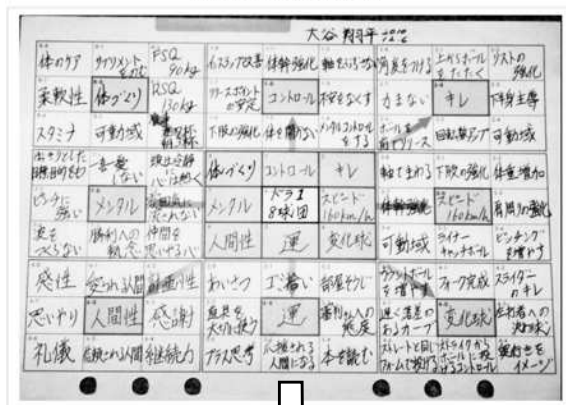 大谷翔平
体のケア サプリメントをのむ FSQ 90kg インステップ改善 体幹強化 軸をぶらさない 角度をつける 上からボールをたたく リストの強化
柔軟性 体づくり RSQ 130kg リリースポイントの安定 コントロール 不安をなくす 力まない キレ 下半身主導
スタミナ 可動域 下肢の強化 体を開かない メンタルコントロールをする ボールを前でリリース 回転数アップ 可動域
一喜一憂しない 体づくり コントロール キレ 軸でまわる 下肢の強化 体重増加
ピンチに強い メンタル 雰囲気に流されない メンタル ドラ1 8球団 スピード 160km/h 体幹強化 スピード 160km/h 肩周りの強化
波をつくらない 勝利への執念 仲間を思いやる心 人間性 運 変化球 可動域 ライナーキャッチボール ピッチングを増やす
感性 愛される人間 計画性 あいさつ ゴミ拾い 部屋そうじ カウントボールを増やす フォーク完成 スライダーのキレ
思いやり 人間性 感謝 道具を大切に使う 運 審判さんへの態度 遅く落差のあるカーブ 変化球 左打者への決め球
礼儀 信頼される人間 継続力 プラス思考 応援される人間になる 本を読む ストレートと同じフォームで投げる ストライクからボールに投げるコントロール 奥行きをイメージ